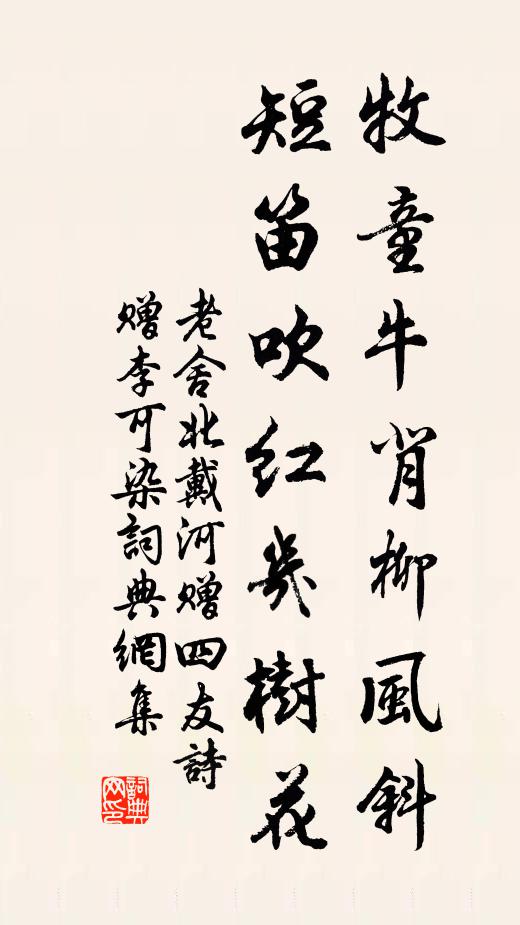 牧童牛背柳風斜
短笛吹紅幾樹花
老舍北戴河贈四友詩
贈李可染詞典網集
詞典网印